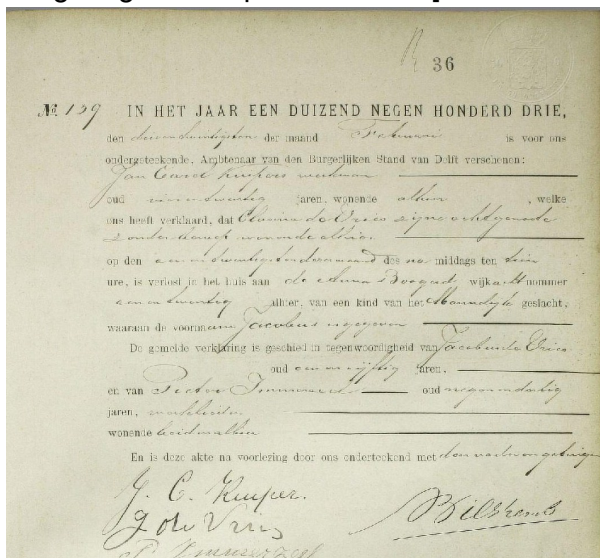 36
No. 139 IN HET JAAR EEN DUIZEND NEGEN HONDERD DRIE,
den drieentwintigsten der maand Februari is voor ons
ondergeteekende, Ambtenaar van den Burgerlijken Stand van Delft verschenen:
Jan Carel Kuipers werkman
oud jaren, wonende alhier, welke
ons heeft verklaard, dat de Vries zijne echtgenoote
zonder beroep wonende alhier
op den een en twintigsten dezer maand des na middags ten tien
ure, is verlost in het huis aan de Boogerd, wijk acht nummer
een en twintig alhier, van een kind van het Mannelijk geslacht,
waaraan de voornaam Jacobus is gegeven
De gemelde verklaring is geschied in tegenwoordigheid van Jacobus de Vries
oud en vijftig jaren,
en van Pieter Immerzeel oud negen en dertig
jaren, werklieden
wonende beiden alhier
En is deze akte na voorlezing door ons onderteekend met den vader en getuigen
J. C. Kuiper.
J de Vries
P. Immerzeel